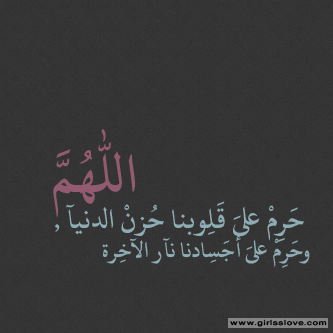 اللَّهُمَّ
حَرِمْ علىَ قَلِوبنا حُزنْ الدنيآ ,
وحَرِمْ علىَ أَجَسِادنا نآر الآخِرة
www.girlsslove.com